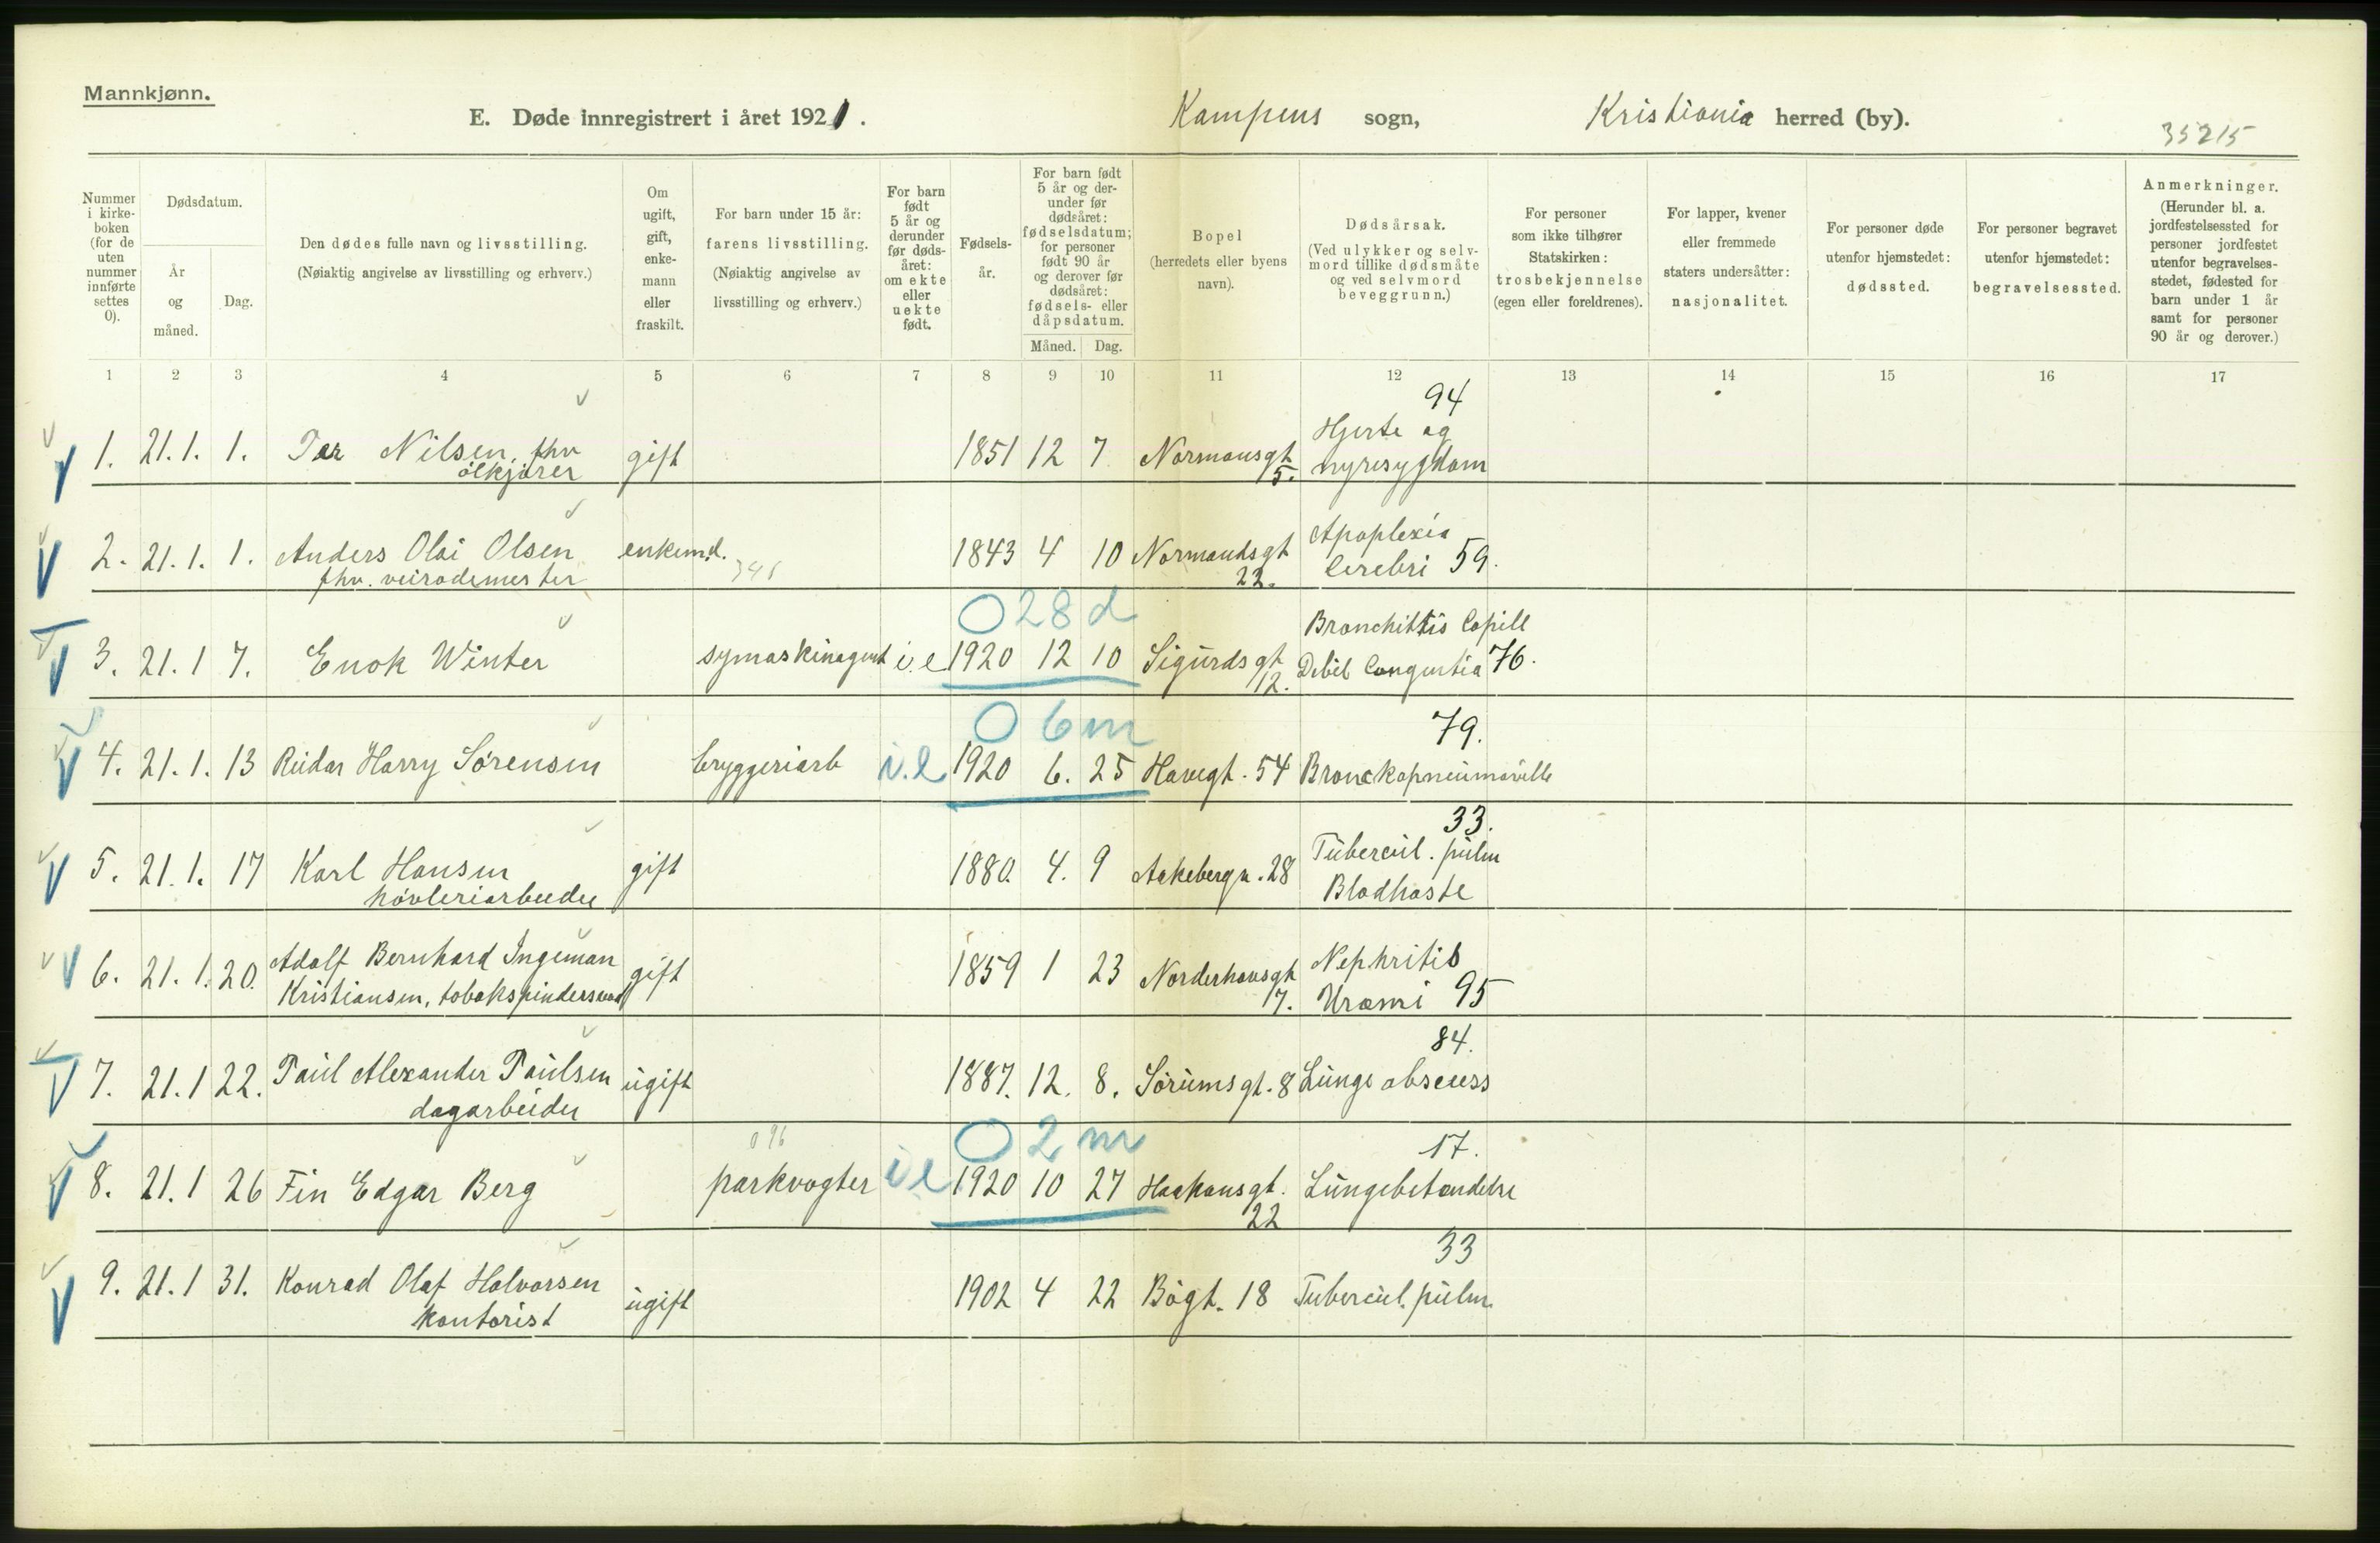 Mannkjønn.
E. Døde innregistrert i året 1921. Kampens sogn, Kristiania herred (by).
35215
Nummer i kirke-boken (for de uten nummer innførte settes 0).
Dødsdatum.
År og måned.
Dag.
Den dødes fulle navn og livsstilling.
(Nøiaktig angivelse av livsstilling og erhverv.)
Om ugift, gift, enke-mann eller fraskilt.
For barn under 15 år: farens livsstilling.
(Nøiaktig angivelse av livsstilling og erhverv.)
For barn født 5 år og derunder før døds-året: om ekte eller uekte født.
Fødsels-år.
For barn født 5 år og der-under før dødsåret: fødselsdatum; for personer født 90 år og derover før dødsåret: fødsels- eller dåpsdatum.
Måned. Dag.
Bopel (herredets eller byens navn).
Dødsårsak.
(Ved ulykker og selv-mord tillike dødsmåte og ved selvmord beveggrunn.)
For personer som ikke tilhører Statskirken: trosbekjennelse (egen eller foreldrenes).
For lapper, kvener eller fremmede staters undersåtter: nasjonalitet.
For personer døde utenfor hjemstedet: dødssted.
For personer begravet utenfor hjemstedet: begravelsessted.
Anmerkninger.
(Herunder bl. a. jordfestelsessted for personer jordfestet utenfor begravelses-stedet, fødested for barn under 1 år samt for personer 90 år og derover.)
1 2 3 4 5 6 7 8 9 10 11 12 13 14 15 16 17
94
1. 21.1. 1. Per Nilsen, fhv gift 1851 12 7 Normansgt Hjerte og
ølkjører 15. nyresygdom
2. 21.1. 1. Anders Olai Olsen enkemd. 1843 4 10 Normandsgt Apoplexia
fhv. veirodemester 346 22. Cerebri 59.
0 28 d
3. 21.1 7. Enok Winter symaskinagent i.e 1920 12 10 Sigurdsgt Bronchittis Capill
12. Debil Congestia 76.
0 6 m 79.
4. 21.1. 13 Reidar Harry Sørensen bryggeriarb i.e 1920 6. 25 Havegt. 54
33.
5. 21.1. 17 Karl Hansen gift 1880. 4. 9 Aakebergv. 28 Tubercul. pulm
høvleriarbeider Blodhoste
6. 21.1. 20. Adolf Bernhard Ingeman gift 1859 1 23 Norderhovsgt Nephritis
Kristiansen, 17. Uræmi 95
84.
7. 21.1 22. Paul Alexander Paulsen ugift 1887. 12. 8. Sørumsgt. 8 Lungeabscess
dagarbeider
0 2 m 17.
8. 21.1 26 Fin Edgar Berg parkvogter i.e 1920 10 27 Haakonsgt. Lungebetændelse
22
33
9. 21.1 31. Konrad Olaf Halvorsen ugift 1902 4 22 Bøgt. 18 Tubercul. pulm.
kontorist